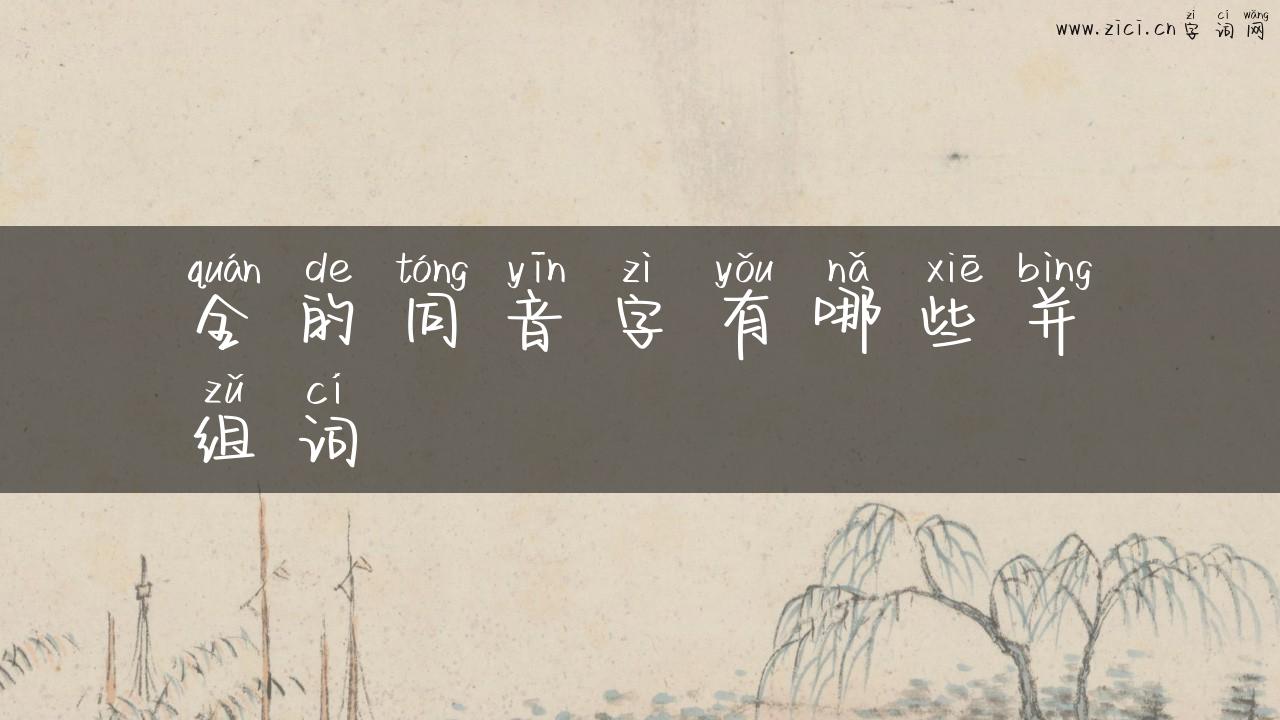 zì cí wǎng
www.zici.cn 字 词 网
quán de tóng yīn zì yǒu nǎ xiē bìng
全 的 同 音 字 有 哪 些 并
zǔ cí
组 词